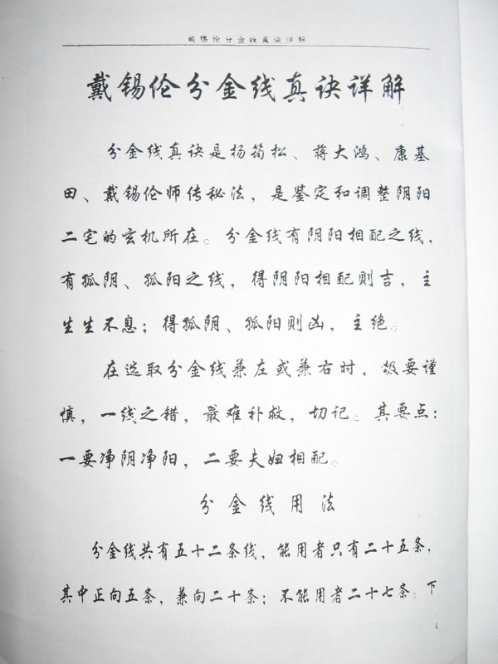 戴锡伦分金线真诀详解
戴锡伦分金线真诀详解
分金线真诀是杨筠松、蒋大鸿、康基
田、戴锡伦师传秘法，是鉴定和调整阴阳
二宅的玄机所在。分金线有阴阳相配之线，
有孤阴、孤阳之线，得阴阳相配则吉，主
生生不息；得孤阴、孤阳则凶，主绝。
在选取分金线兼左或兼右时，极要谨
慎，一线之错，最难补救，切记。其要点：
一要净阴净阳，二要夫妇相配。
分金线用法
分金线共有五十二条线，能用者只有二十五条，
其中正向五条，兼向二十条；不能用者二十七条。下